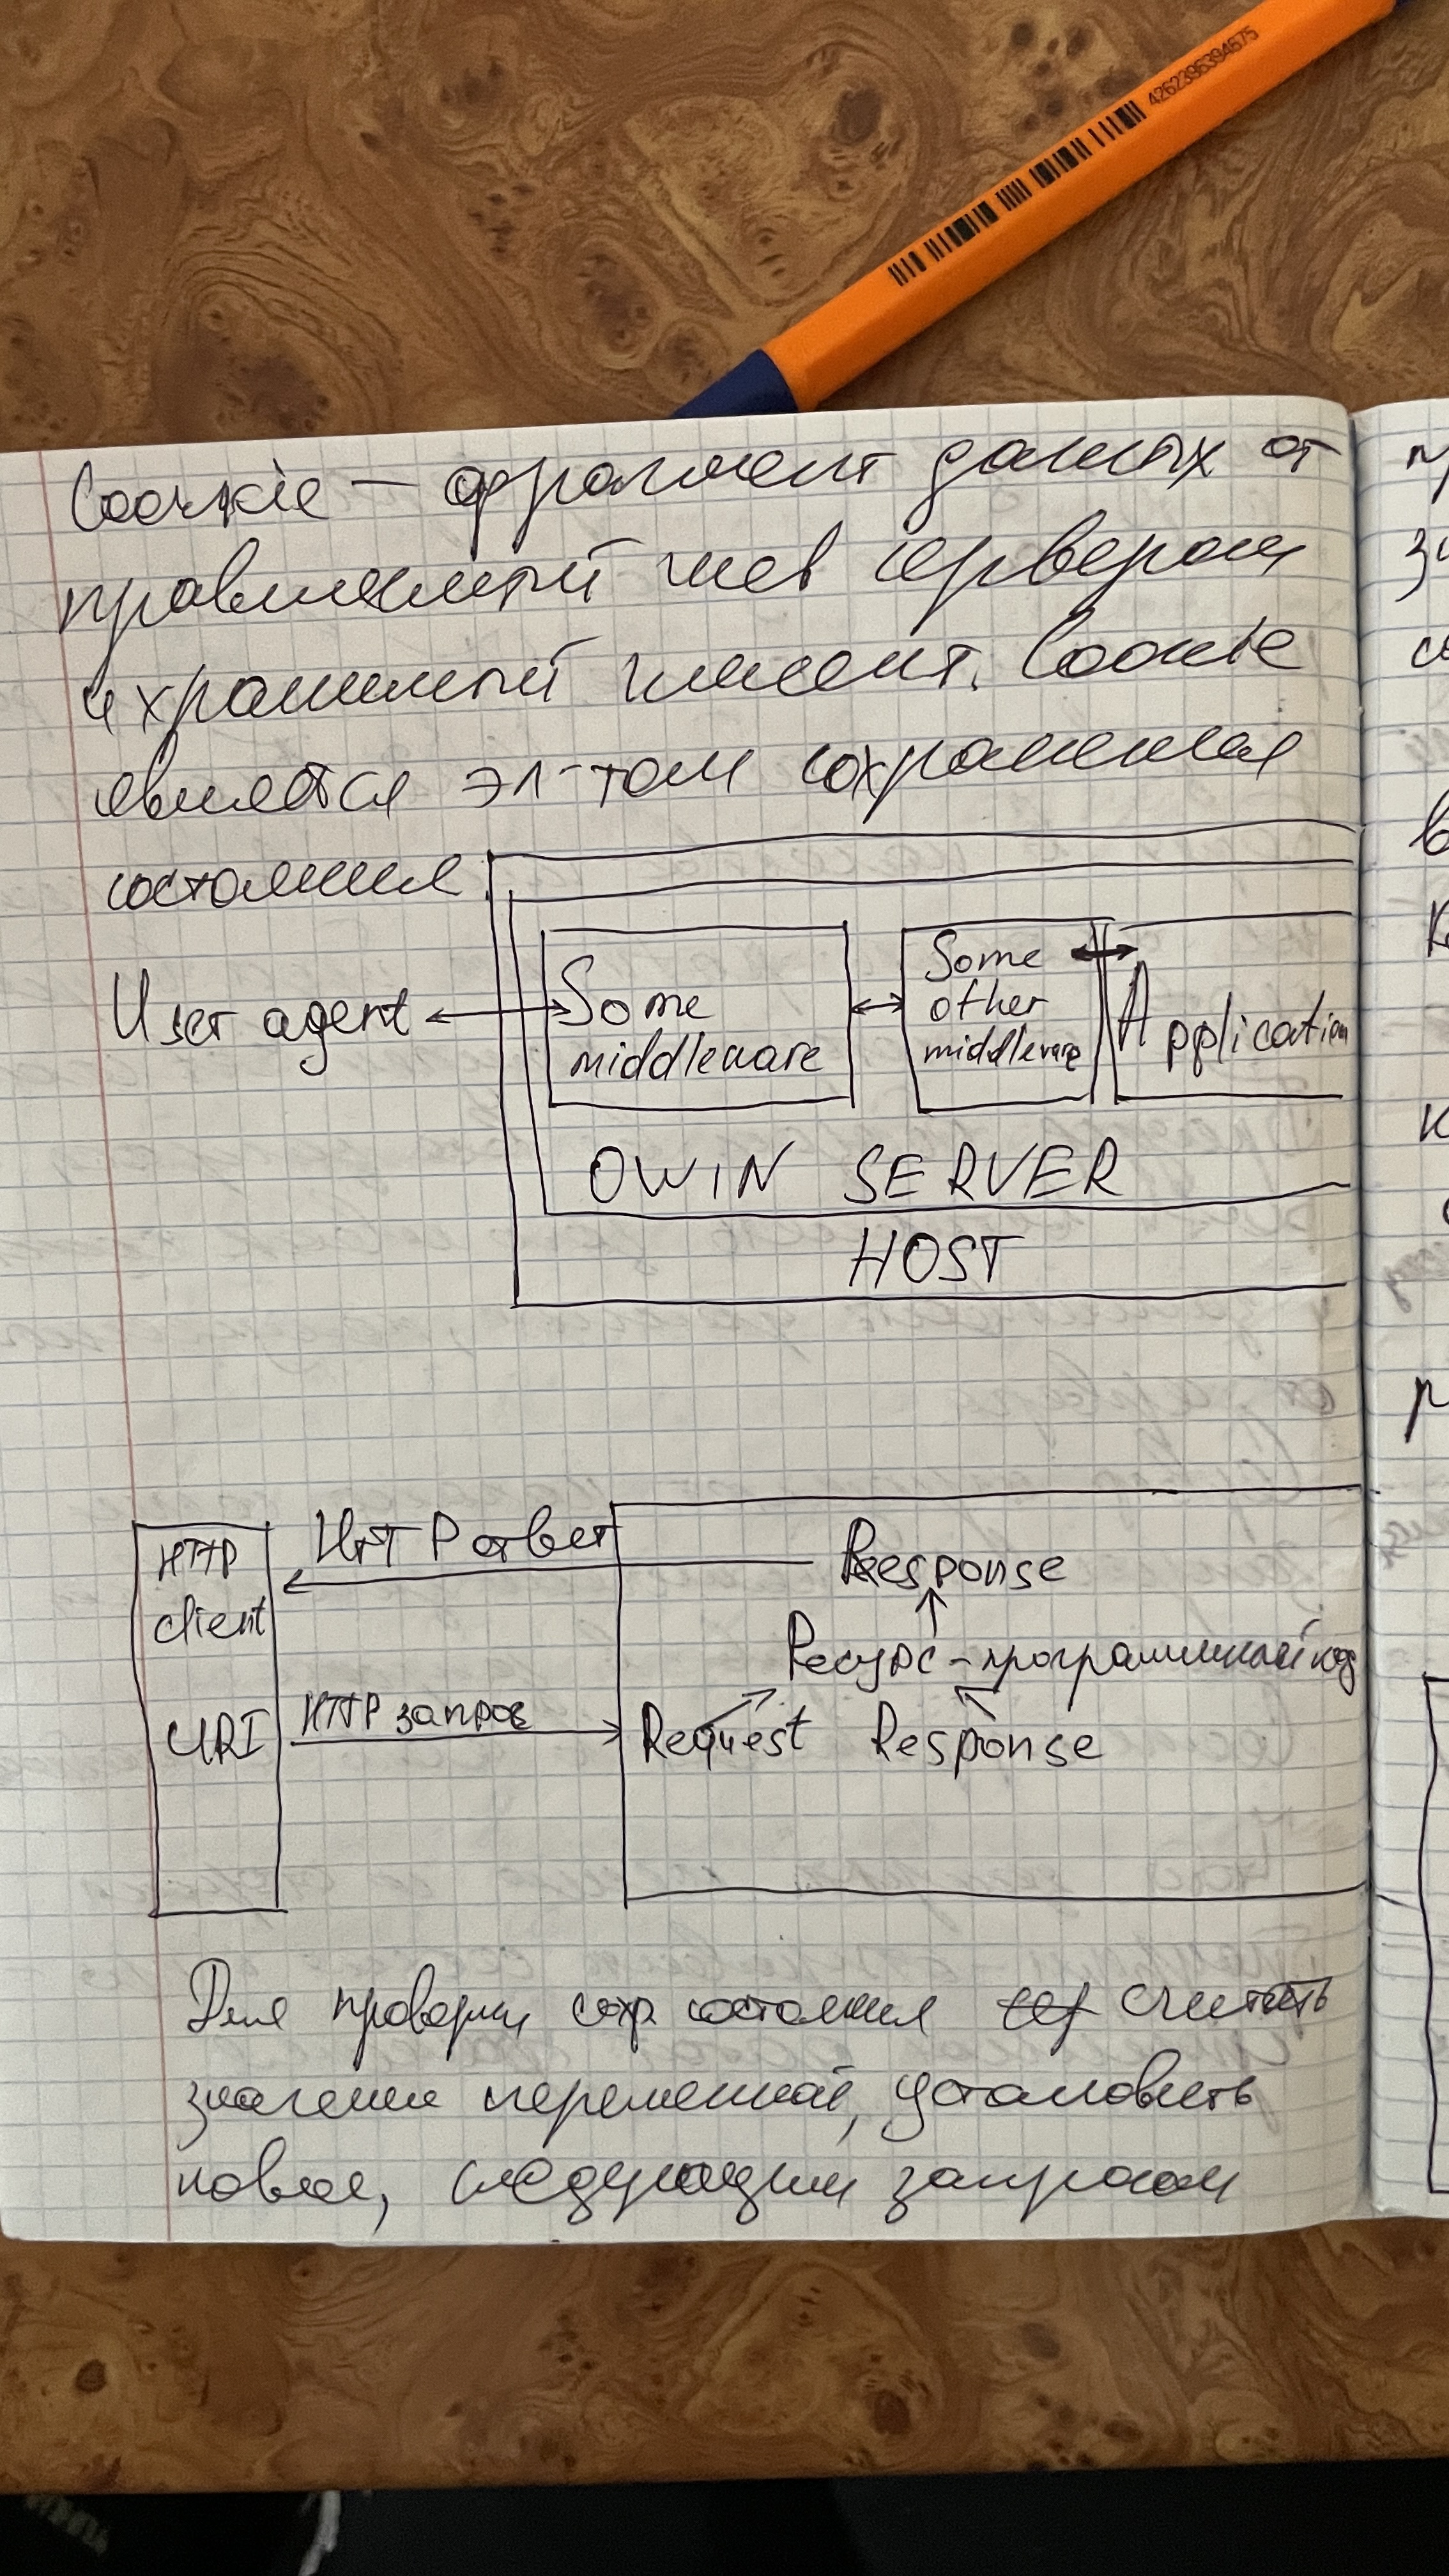 4262396394675
Cookie — фрагмент данных от
правленный веб сервером
и хранимый клиент. Cookie
является эл-том сохранения
состояния
User agent
Some
middleware
Some
other
middleware
Application
OWIN SERVER
HOST
HTTP
client
URI
HTTP ответ
HTTP запрос
Response
Ресурс - программный код
Request Response
Для проверки сохр. состояния считать
значение переменной, установить
новое, следующим запросом